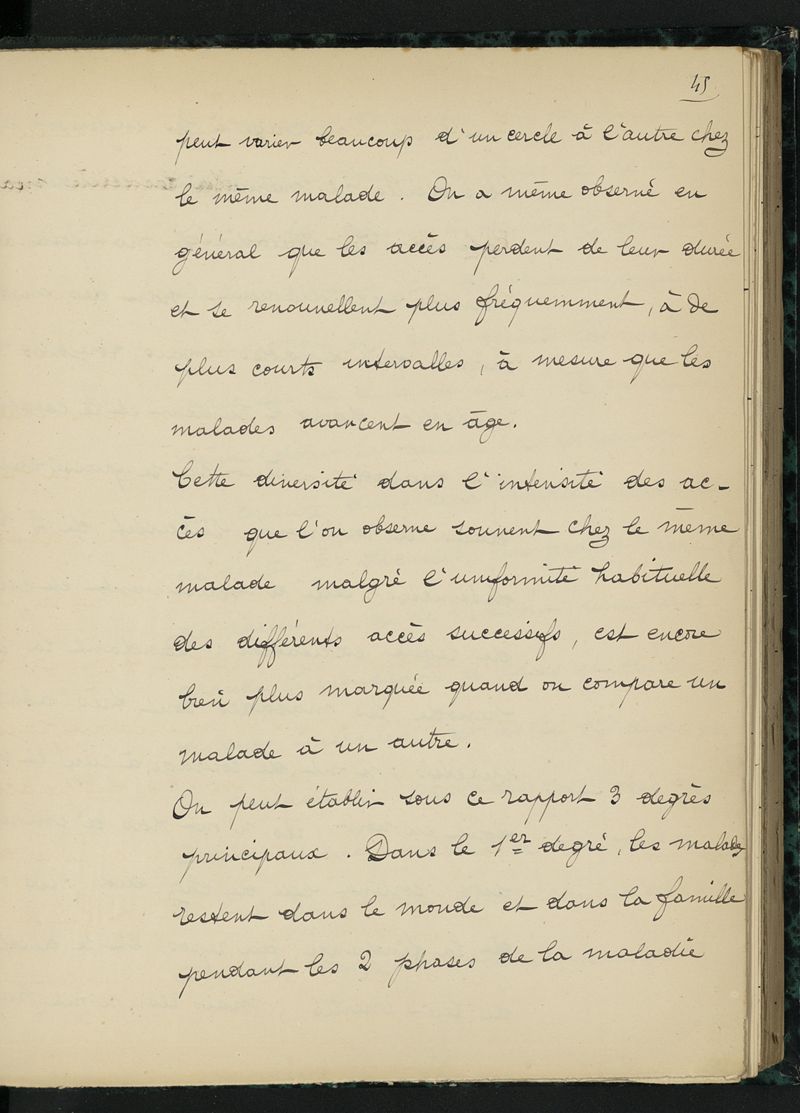 45
peut varier beaucoup d'un cercle à l'autre chez
le même malade. On a même observé en
général que les accès perdent de leur durée
et se renouvellent plus fréquemment, à de
plus courts intervalles, à mesure que les
malades avancent en âge.
Cette diversité dans l'intensité des ac-
cès que l'on observe souvent chez le même
malade malgré l'uniformité habituelle
des différents accès successifs, est encore
bien plus marquée quand on compare un
malade à un autre.
On peut établir sous ce rapport 3 degrés
principaux. Dans le 1er degré, les malades
restent dans le monde et dans la famille
pendant les 2 phases de la maladie